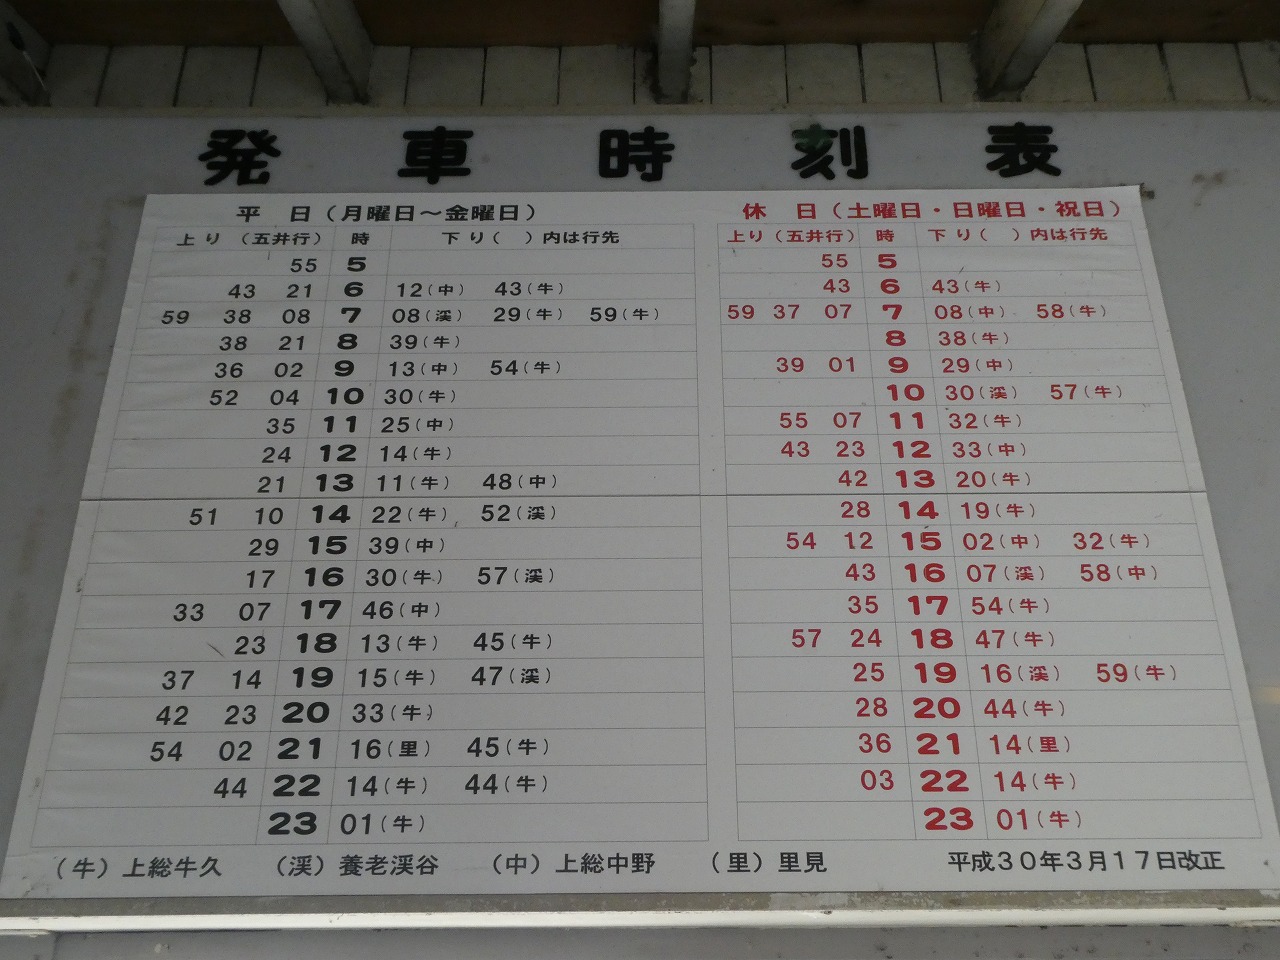 発車時刻表
平 日（月曜日～金曜日） 休 日（土曜日・日曜日・祝日）
上り（五井行） 時 下り（ ）内は行先 上り（五井行） 時 下り（ ）内は行先
55 5 55 5
43 21 6 12（中） 43（牛） 43 6 43（牛）
59 38 08 7 08（渓） 29（牛） 59（牛） 59 37 07 7 08（中） 58（牛）
38 21 8 39（牛） 8 38（牛）
36 02 9 13（中） 54（牛） 39 01 9 29（中）
52 04 10 30（牛） 10 30（渓） 57（牛）
35 11 25（中） 55 07 11 32（牛）
24 12 14（牛） 43 23 12 33（中）
21 13 11（牛） 48（中） 42 13 20（牛）
51 10 14 22（牛） 52（渓） 28 14 19（牛）
29 15 39（中） 54 12 15 02（中） 32（牛）
17 16 30（牛） 57（渓） 43 16 07（渓） 58（中）
33 07 17 46（中） 35 17 54（牛）
23 18 13（牛） 45（牛） 57 24 18 47（牛）
37 14 19 15（牛） 47（渓） 25 19 16（渓） 59（牛）
42 23 20 33（牛） 28 20 44（牛）
54 02 21 16（里） 45（牛） 36 21 14（里）
44 22 14（牛） 44（牛） 03 22 14（牛）
23 01（牛） 23 01（牛）
（牛）上総牛久 （渓）養老渓谷 （中）上総中野 （里）里見 平成３０年３月１７日改正